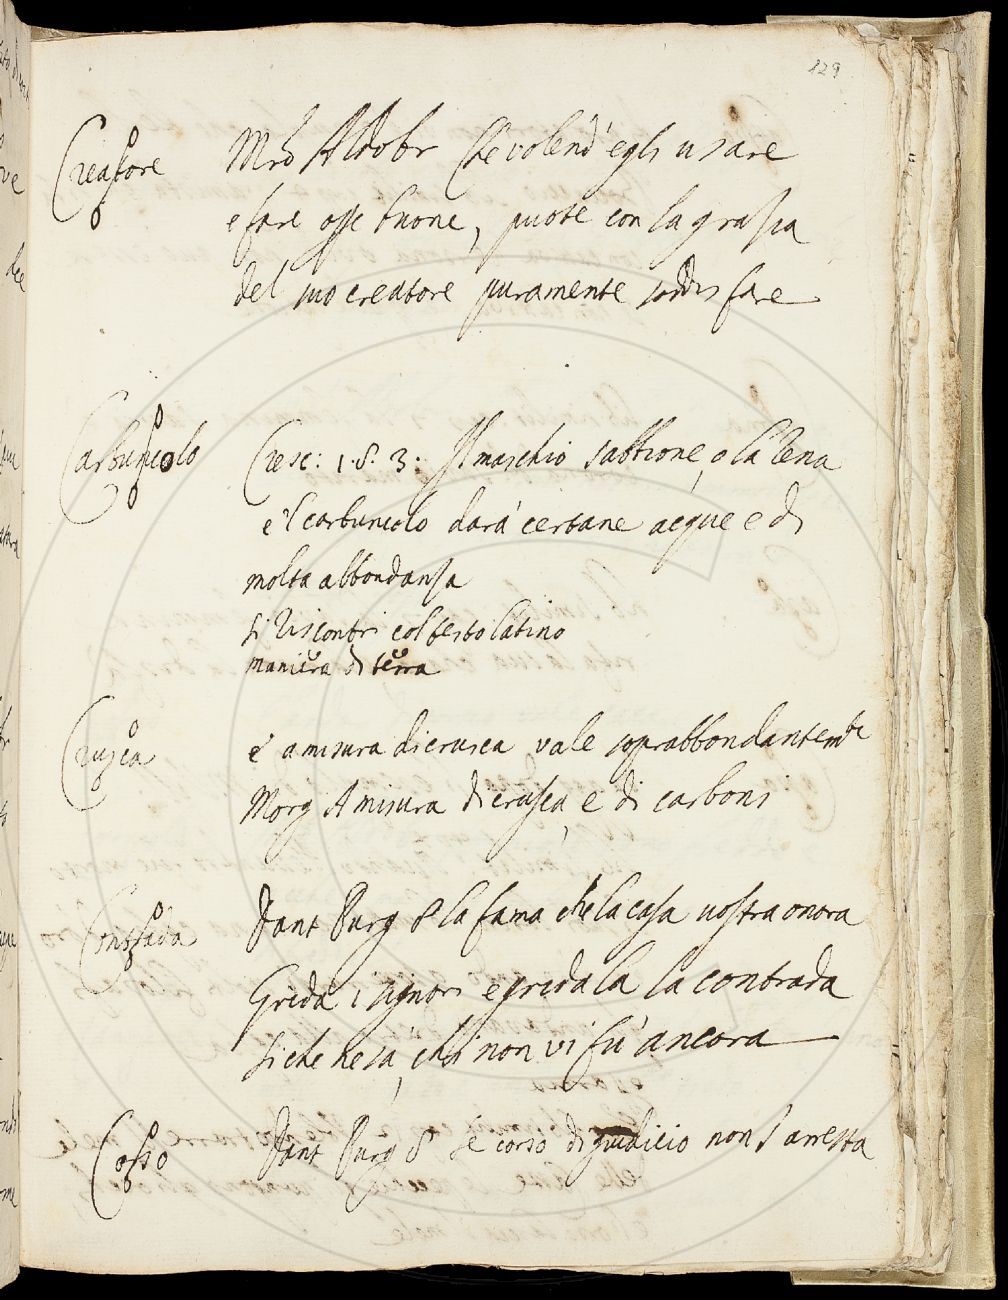 129
Creatore Mrõ Aldobr Che volend' egli usare
e fare opre buone, puote con la grazia
del suo creatore puramente soddisfare
Carbuncolo Cresc: 1. 8. 3. Il maschio sabbione, o la lena
e 'l carbuncolo darà certane acque e di
molta abbondanza
si riscontri col testo latino
maniera di terra
Crusca e' a misura di crusca vale soprabbondantemte
Morg A misura di crusca, e di carboni
Contrada Dant Purg 8 la fama che la casa vostra onora
Grida i signori e grida la contrada
Siche ne sa, chi non vi fu' ancora
Corso Dant Purg 8 se corso di giudicio non s'arresta